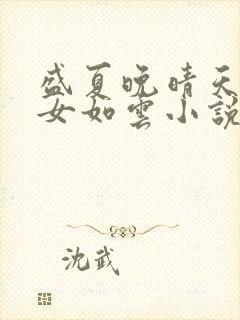 盛夏晚晴天
女如雲小說
沈武